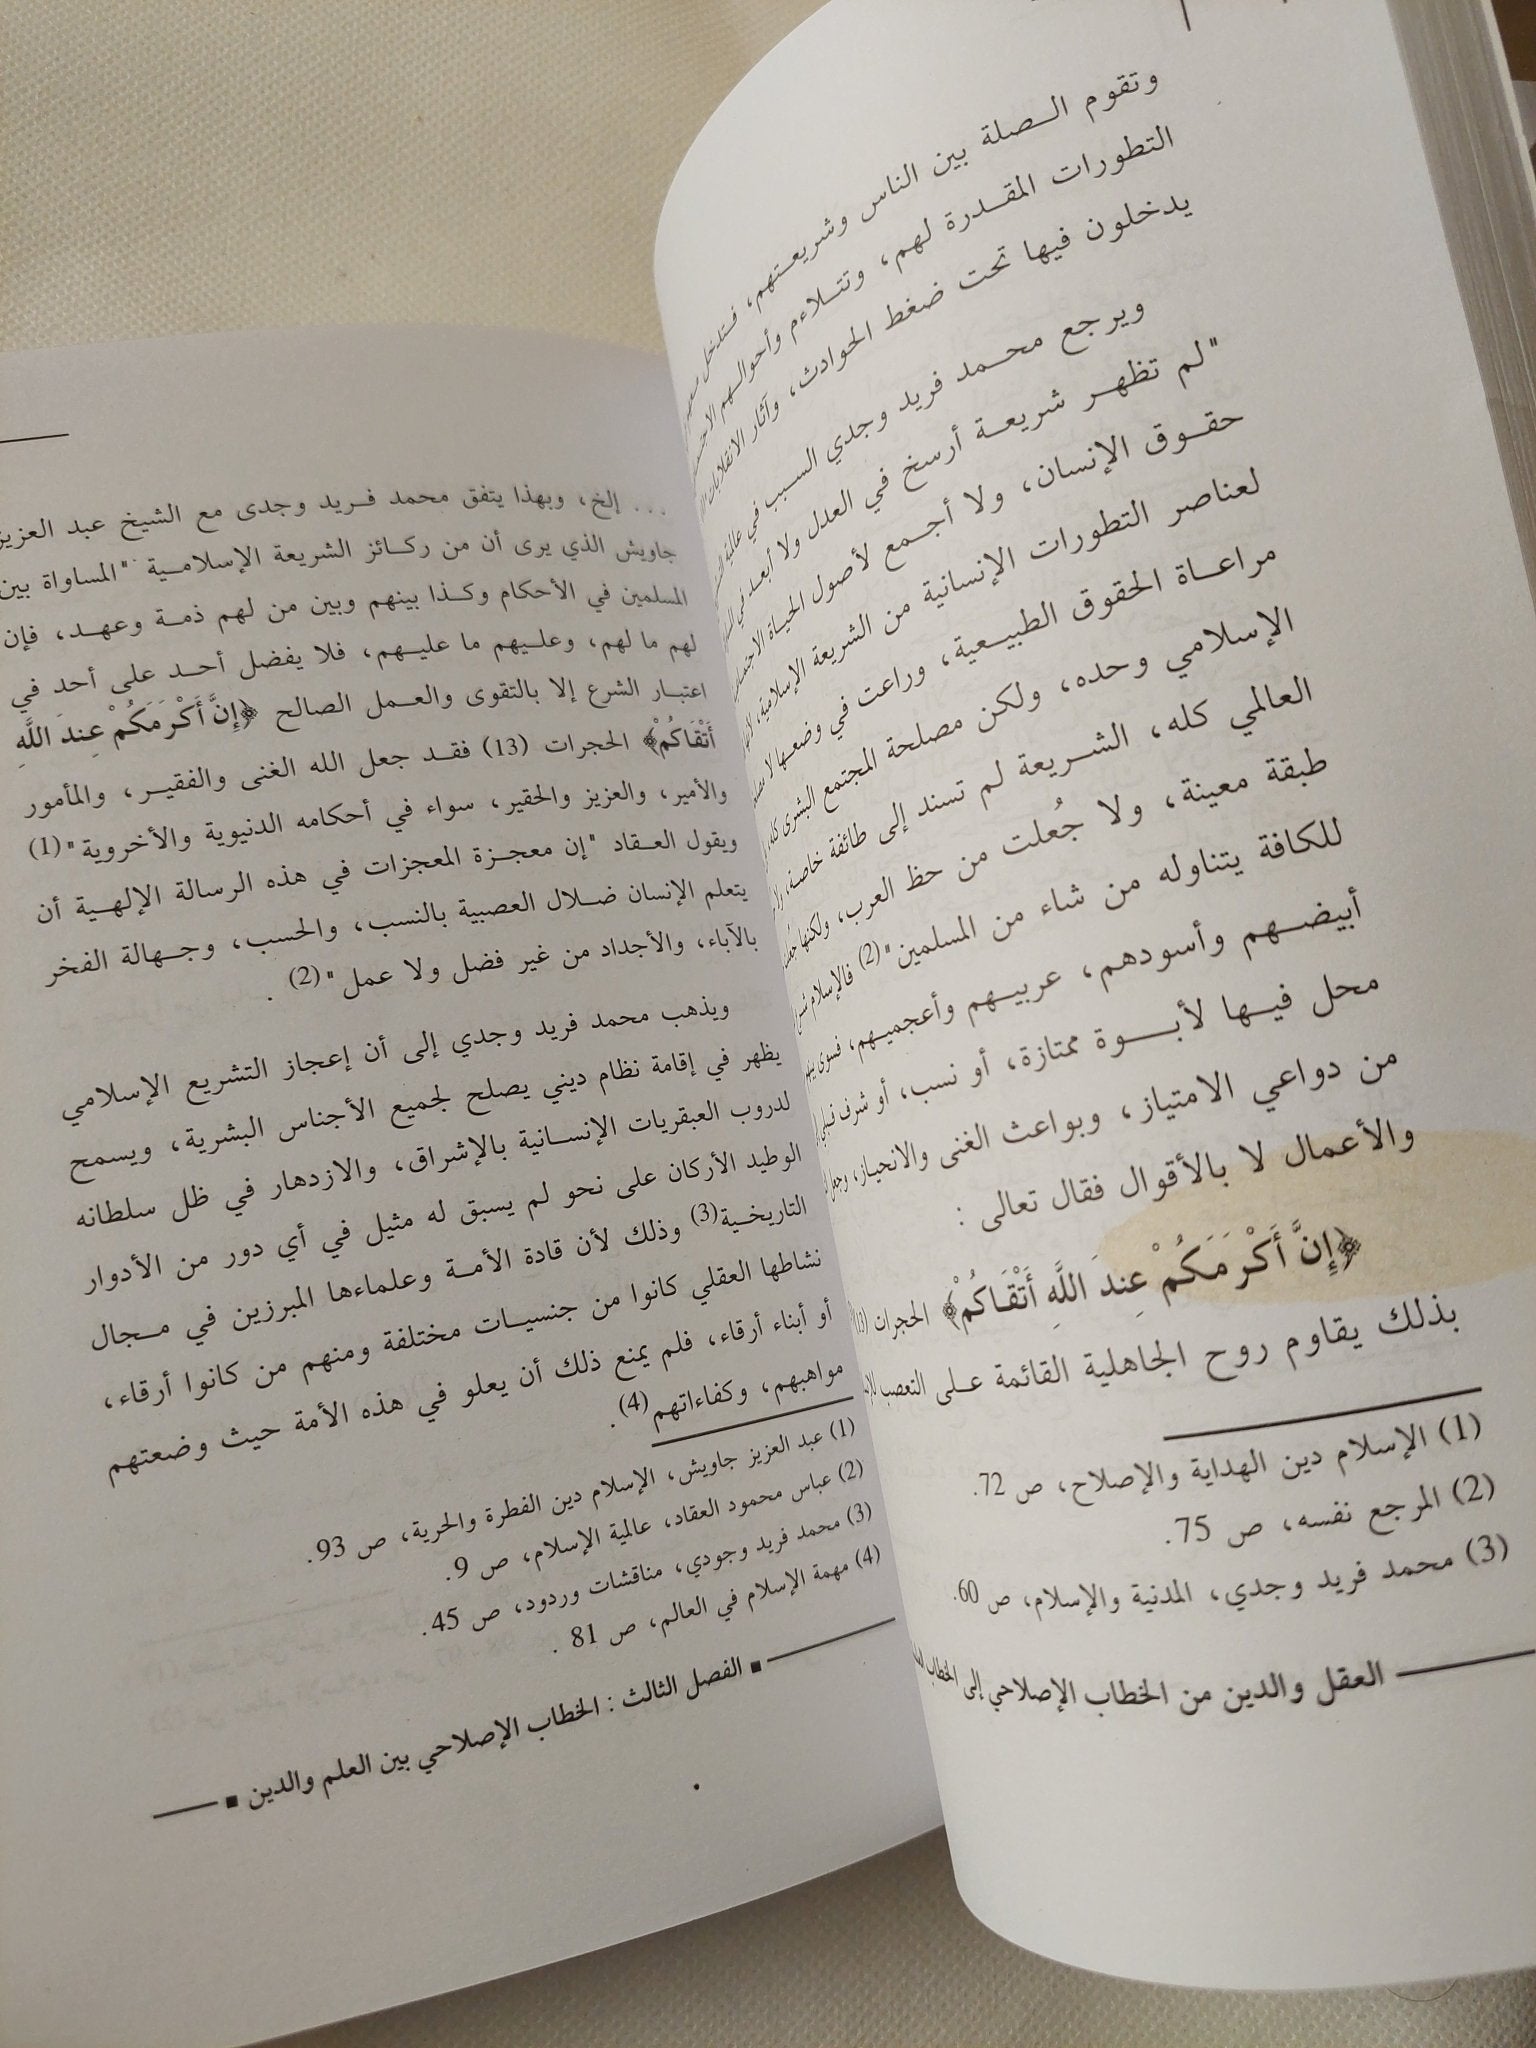 وتقوم الـــصلة بين الناس وشريعـــتهم، فـتدخل
التطورات المقـــدرة لهم، وتتـــلاءم وأحوالـــهم
يدخلون فيها تحت ضغط الحوادث، وآثار الانقلابات
ويرجع محمـــد فريد وجدي السبب في عالمية
"لم تظهـــر شريعـــة أرسخ في العدل ولا أبعـد في
حقـــوق الإنسان، ولا أجـــمع لأصول الحياة
لعناصر التطورات الإنسانية من الشريعة الإسلامية،
مراعـــاة الحقوق الطبيـــعية، وراعت في وضعـها لا
الإسلامي وحده، ولكن مصلحة المجتمع البشرى كله،
العالمي كله، الشـــريعة لم تسند إلى طائفة خاصة،
طبقة معينة، ولا جُعلت من حظ العرب، ولكنها
للكافة يتناوله من شاء من المسلمين"(2) فالإسلام
أبيضـــهم وأسودهم، عربيـــهم وأعجميـــهم، فسوى
محل فيـــها لأبـــوة ممتازة، أو نسب، أو شرف
من دواعي الامتياز، وبواعث الغنى والانحياز، وجعل
والأعمال لا بالأقوال فقال تعالى :
﴿إِنَّ أَكْرَمَكُمْ عِندَ اللَّهِ أَتْقَاكُمْ﴾ الحجرات
بذلك يقاوم روح الجاهلية القائمة عـــلى التعصب
(1) الإسلام دين الهداية والإصلاح، ص 72.
(2) المرجع نفسه، ص 75.
(3) محمد فريد وجدي، المدنية والإسلام، ص 60.
العقل والدين من الخطاب الإصلاحي إلى الخطاب
... إلخ، وبهذا يتفق محمد فـــريد وجدى مع الشيخ عبد العزيز
جاويش الذي يرى أن من ركـــائز الشريعة الإسلامـــية "المساواة بين
المسلمين في الأحكام وكـــذا بينهم وبين من لهم ذمـــة وعهـــد، فإن
لهم ما لهم، وعلـــيهم ما عليـــهم، فلا يفضل أحـــد على أحد في
اعتبـــار الشرع إلا بالتقوى والعـــمل الصالح ﴿إِنَّ أَكْرَمَكُمْ عِندَ اللَّهِ
أَتْقَاكُمْ﴾ الحجرات (13) فقـــد جعل الله الغنى والفقيـــر، والمأمور
والأمير، والعزيز والحقير، سواء في أحكامه الدنيوية والأخروية"(1)
ويقول العـــقاد "إن معجـــزة المعجزات في هذه الرسالة الإلهـــية أن
يتعلم الإنسان ضـــلال العصبية بالنسب، والحسب، وجـــهالة الفخر
بالآباء، والأجداد من غير فضل ولا عمل"(2) .
ويذهب محمد فريد وجدي إلى أن إعجاز التشريع الإسلامي
يظهر في إقامة نظام ديني يصلح لجميع الأجناس البشرية، ويسمح
لدروب العبقريات الإنســـانية بالإشراق، والازدهار في ظل سلطانه
الوطيد الأركان على نحو لم يسبق له مثيل في أي دور من الأدوار
التاريخـــية(3) وذلك لأن قادة الأمـــة وعلماءها المبرزين في مـــجال
نشاطها العقلي كانوا من جنسيـــات مختلفة ومنهم من كانوا أرقاء،
أو أبناء أرقاء، فلم يمنع ذلك أن يعلو في هذه الأمة حيث وضعتهم
مواهبهم، وكفاءاتهم(4).
(1) عبد العزيز جاويش، الإسلام دين الفطرة والحرية، ص 93.
(2) عباس محمود العقاد، عالمية الإسلام، ص 9.
(3) محمد فريد وجودي، مناقشات وردود، ص 45.
(4) مهمة الإسلام في العالم، ص 81 .
الفصل الثالث : الخطاب الإصلاحي بين العلم والدين